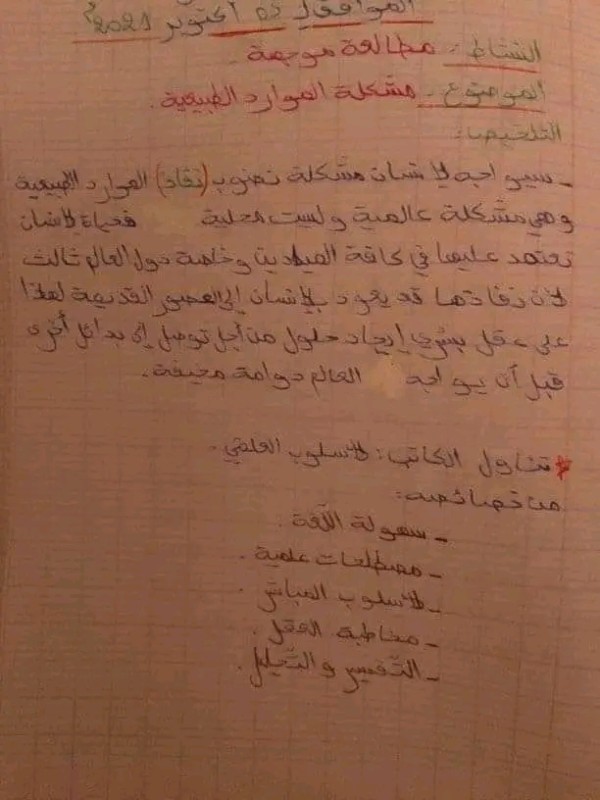 الموافق لـ 05 أكتوبر 2021م
النشاط: مطالعة موجهة.
الموضوع: مشكلة الموارد الطبيعية.
التلخيص:
- سيواجه لانسان مشكلة نضوب (نفاذ) الموارد الطبيعية
وهي مشكلة عالمية وليست محلية فحياة لانسان
تعتمد عليها في كافة الميادين وخاصة دول العالم ثالث
لأن نفادها قد يعود بلإنسان إلى العصور القديمة لهذا
على عقل بشري إيجاد حلول من أجل توصل إلى بدائل أخرى
قبل أن يواجه العالم دوامة مخيفة.
* تناول الكاتب: لاسلوب العلمي.
من خصائصه:
- سهولة اللّغة.
- مصطلحات علمية.
- لاسلوب المباشر.
- مخاطبة العقل.
- التّفسير والتّحليل.